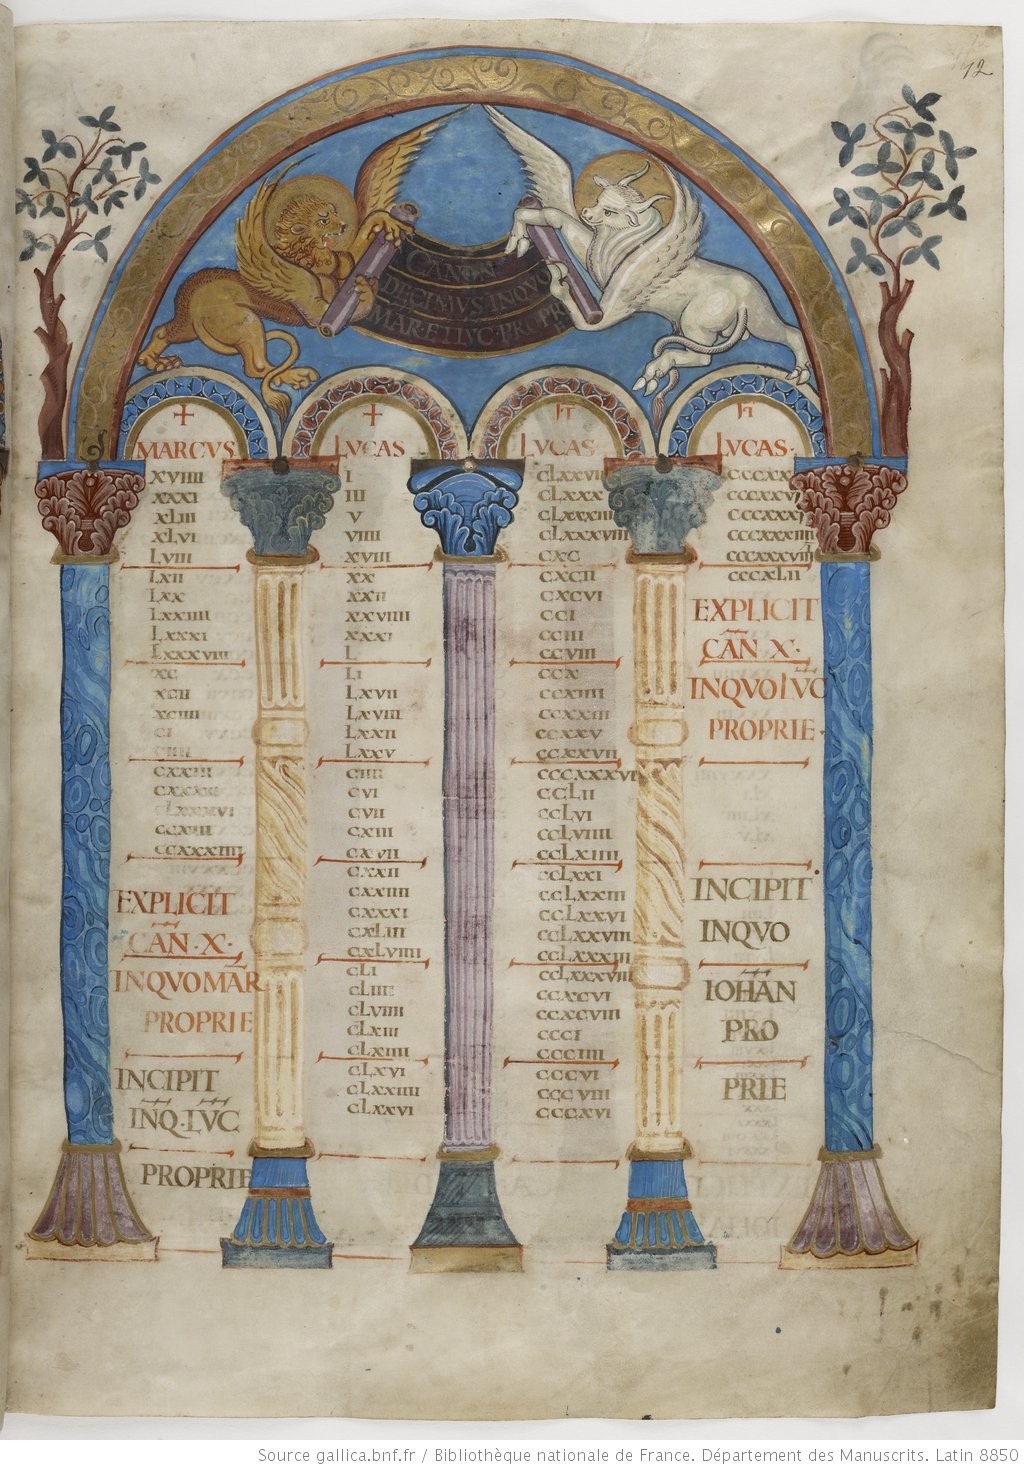 12
CANON
DECIMVS INQVO
MAR·ET LVC·PROPR
MARCVS
XVIIII
XXXI
XLIII
XLVI
LVIII
LXII
LXX
LXXIIII
LXXXI
LXXXVIII
XC
XCII
XCIIII
CI
CIIII
CXXIII
CXXXII
CLXXXVI
CCXIII
CCXXXIIII
EXPLICIT
CAN·X·
INQVO MAR
PROPRIE
INCIPIT
INQ·LVC
PROPRIE
LVCAS
I
III
V
VIIII
XVIII
XX
XXII
XXVIIII
XXXI
L
LI
LXVII
LXVIII
LXXII
LXXV
CIIII
CVI
CVII
CXIII
CXVII
CXXII
CXXIIII
CXXXI
CXLIII
CXLVIIII
CLI
CLIIII
CLVIIII
CLXIII
CLXIIII
CLXVI
CLXXIIII
CLXXVI
LVCAS
CLXXVII
CLXXX
CLXXXIII
CLXXXVIII
CXC
CXCII
CXCVI
CCI
CCIII
CCVIII
CCX
CCXIIII
CCXXIII
CCXXV
CCXXVII
CCCXXXVI
CCLII
CCLVI
CCLVIIII
CCLXIIII
CCLXXI
CCLXXIII
CCLXXVI
CCLXXVIII
CCLXXXIII
CCLXXXVIII
CCXCVI
CCXCVIII
CCCI
CCCIIII
CCCVI
CCCVIII
CCCXVI
LVCAS·
CCCXXXIIII
CCCXXXVIII
CCCXLII
EXPLICIT
CAN X·
INQVO LVC
PROPRIE·
INCIPIT
INQVO
IOHAN
PRO
PRIE
Source gallica.bnf.fr / Bibliothèque nationale de France. Département des Manuscrits. Latin 8850